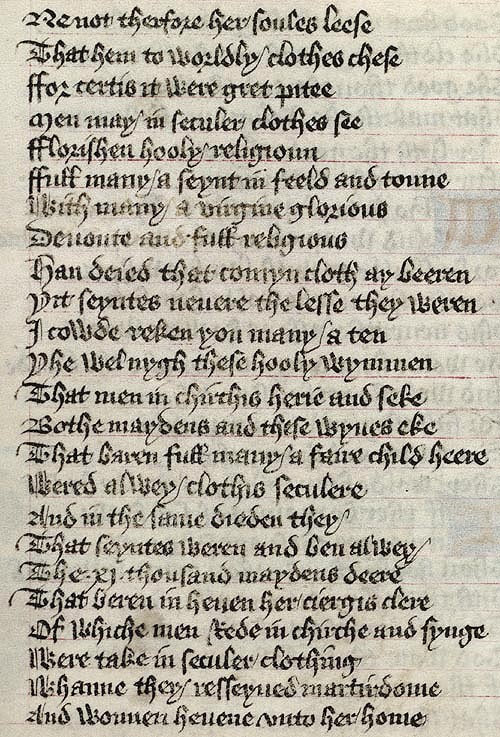 Ne not therfore her soules leese
That hem to worldly clothes chese
ffor certis it were gret pitee
Men may in seculer clothes see
fflorishen hooly religioun
ffull many a seynt in feeld and toune
With many a virgine glorious
Deuoute and full religious
Han deied that comyn cloth ay beeren
Yit seyntes neuere the lesse they weren
I cowde reken you many a ten
Yhe wel nygh these hooly wymmen
That men in chirchis herie and seke
Bothe maydens and these wyues eke
That baren full many a faire child heere
Wered alwey clothis seculere
And in the same dieden they
That seyntes weren and ben alwey
The xj thousand maydens deere
That beren in heuen her ciergis clere
Of whiche men rede in chirche and synge
Were take in seculer clothing
Whanne they resseyued martirdome
And wonnen heuene vnto her home